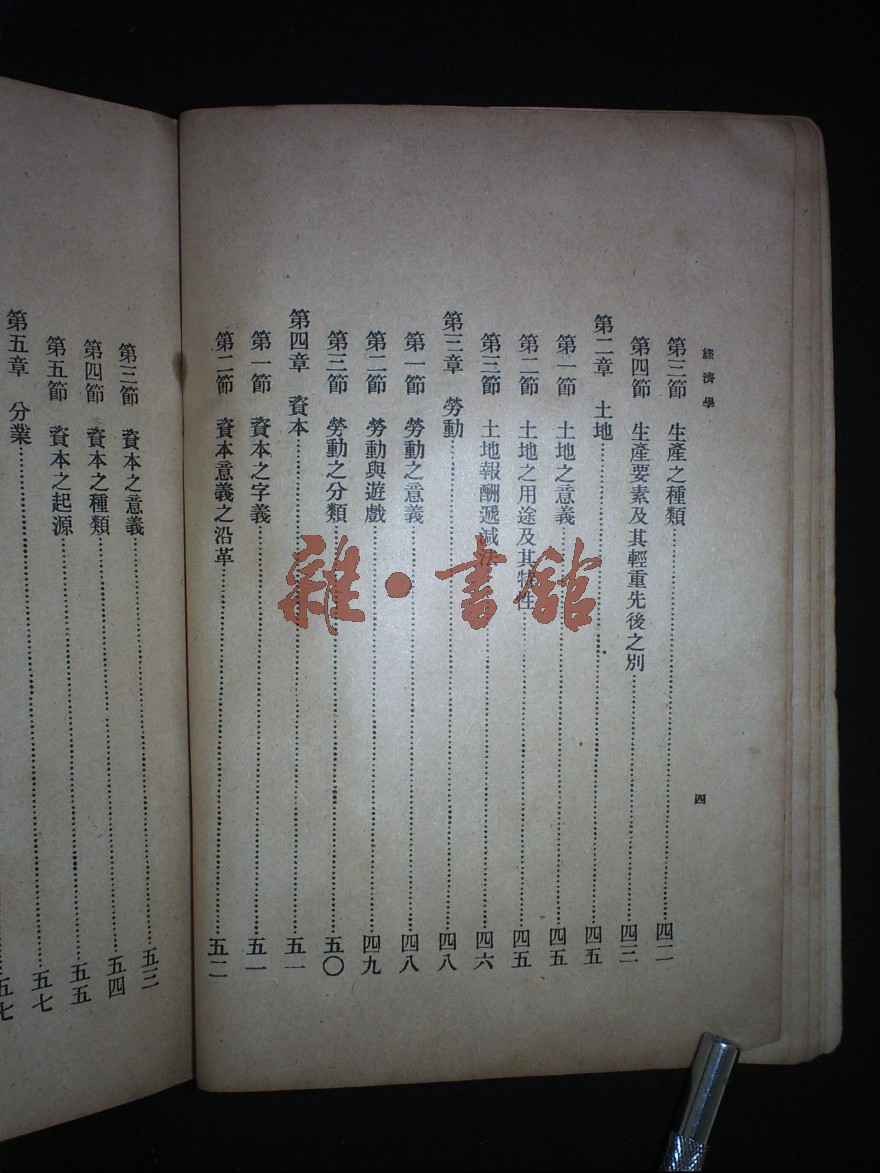 經濟學
四
第三節 生產之種類……四二
第四節 生產要素及其輕重先後之別……四三
第二章 土地……四五
第一節 土地之意義……四五
第二節 土地之用途及其特性……四五
第三節 土地報酬遞減法……四六
第三章 勞動……四八
第一節 勞動之意義……四八
第二節 勞動與遊戲……四九
第三節 勞動之分類……五〇
第四章 資本……五一
第一節 資本之字義……五一
第二節 資本意義之沿革……五二
第三節 資本之意義……五三
第四節 資本之種類……五四
第五節 資本之起源……五五
第五章 分業……五七
五七
雜·書館